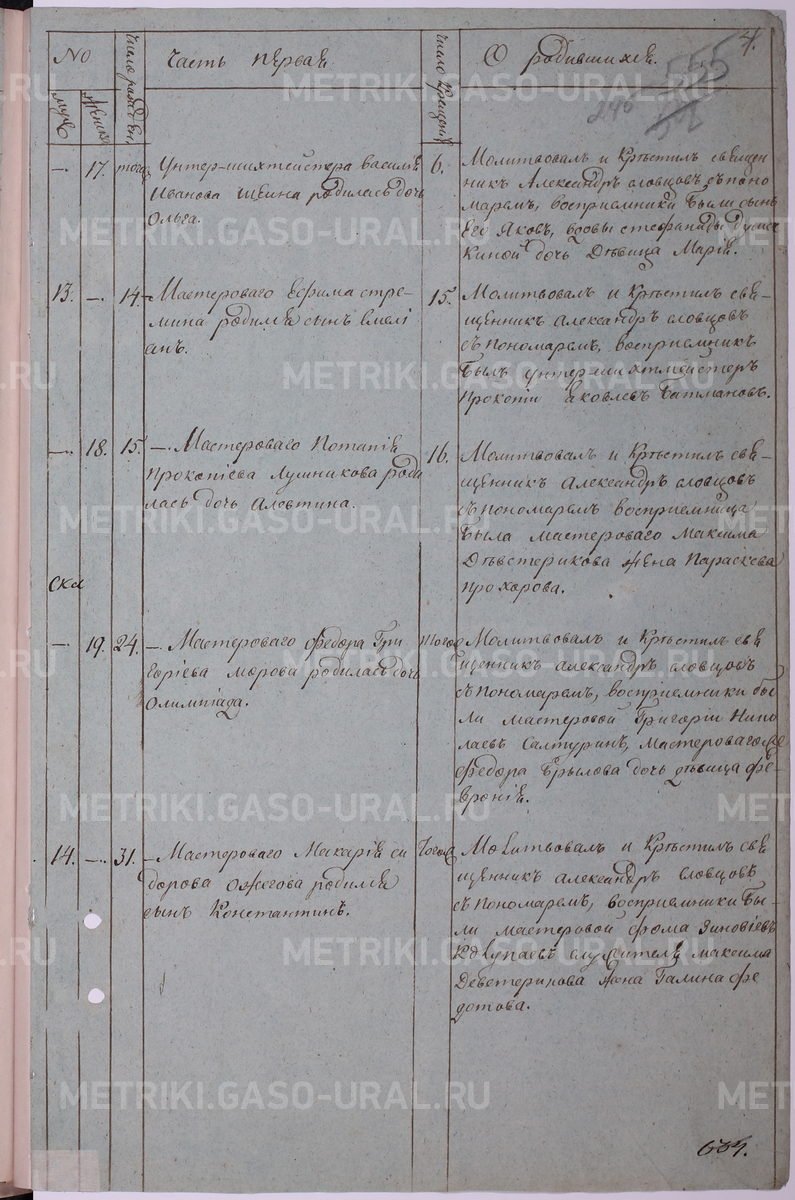 4.
555
246
No
муж.
женск.
число рожден.
Часть первая
число крещен.
О родившихся.
—. 17. тогож
Унтер-шихтмейстера василья
Иванова Шеина родилась дочь
Ольга.
6.
Молитвовалъ и Крѣстилъ священ
никъ Александръ словцовъ съ поно
маремъ, восприемники были сынъ
Его Яковъ, вдовы стефаниды
киной дочь Дѣвица Марія.
13. —. 14.
—Мастероваго Ефима стре-
мина родился сынъ емелі
анъ.
15.
Молитвовалъ и Крѣстилъ свя-
щенникъ александръ словцовъ
съ пономаремъ, восприемникъ
былъ унтер-шихтмейстеръ
Прокопіи Яковлевъ Батмановъ.
—. 18. 15.
—. Мастероваго Потапія
Прокопіева Лумникова роди
лась дочь алевтина.
16.
Молитвовалъ и Крѣстилъ свя-
щенникъ александръ словцовъ
съ пономаремъ восприемница
была мастероваго Максима
Дѣвятерикова жена Параскева
прохорова.
— 19. 24.
—. Мастероваго федора Гри
горіева морова родилась дочь
Олимпіада.
тогож
Молитвовалъ и Крѣстилъ свя
щенникъ александръ словцовъ
съ пономаремъ, восприемники бы
ли мастеровой Григоріи Нико
лаевъ Салтуринъ, мастероваго
федора Брылова дочь дѣвица фе-
вронія.
14. —. 31.
—Мастероваго Макарія си
дорова ожегова родился
сынъ Константинъ.
тогож
Молитвовалъ и Крѣстилъ свя
щенникъ александръ словцовъ
съ пономаремъ, восприемники бы-
ли мастеровой фома зиновіевъ
служителя максима
Деветерикова жена Галина фе
дотова.
METRIKI.GASO-URAL.RU